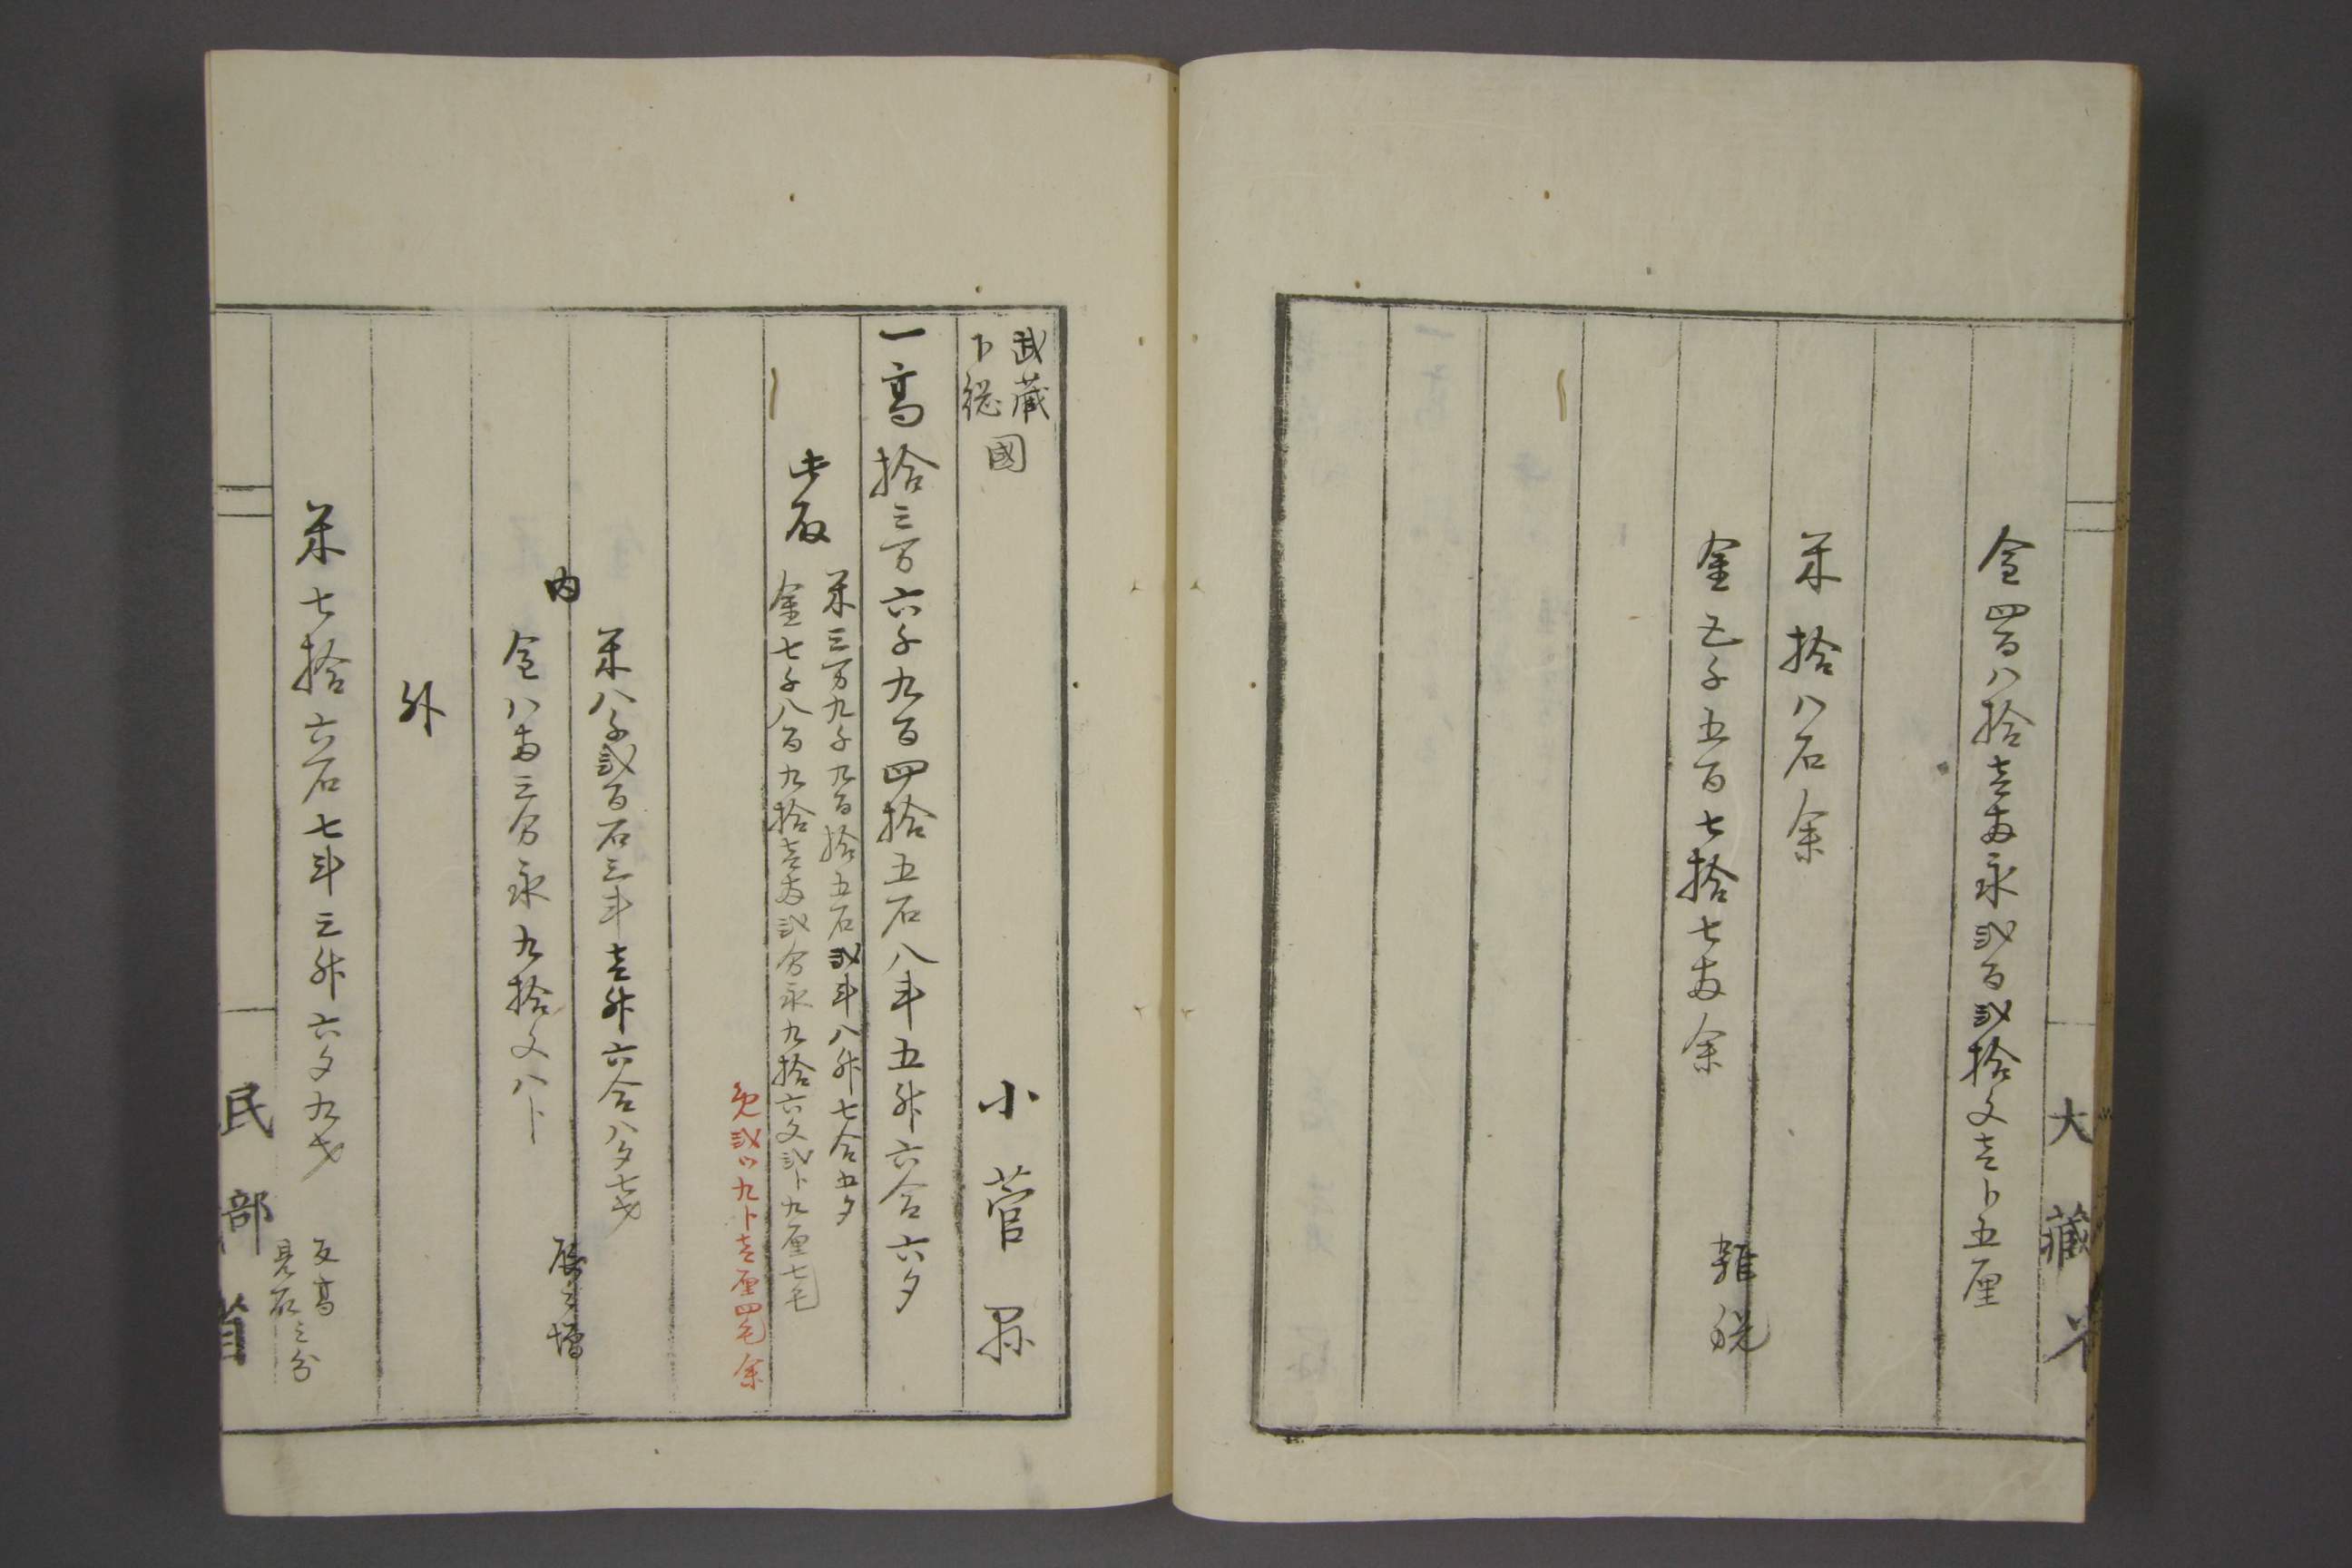 金四百八拾壱両永弐百弐拾文壱卜五厘
米拾八石余
金五千五百七拾七両余
雑税
大藏省
武藏
下総
國
小菅県
一高拾三万六千九百四拾五石八斗五升六合六夕
此取
米三万九千九百拾五石弐斗八升七合五夕
金七千八百九拾壱両弐分永九拾六文弐卜九厘七毛
免弐ツ九卜壱厘四毛余
内
米八千弐百石三斗壱升六合八夕七才
金八両三分永九拾文八卜
外
米七拾六石七斗三升六夕九才
反高
見取之分
民部省